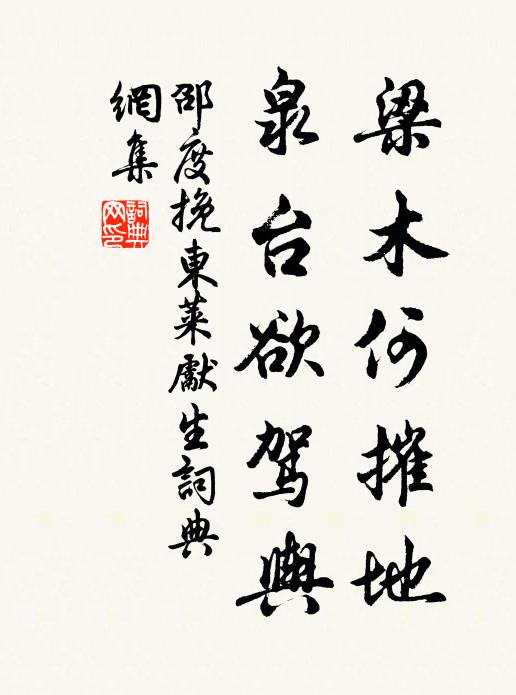 梁木何摧地
泉台欲駕輿
邵度挽東萊獻生詞典
網集
詞典網印